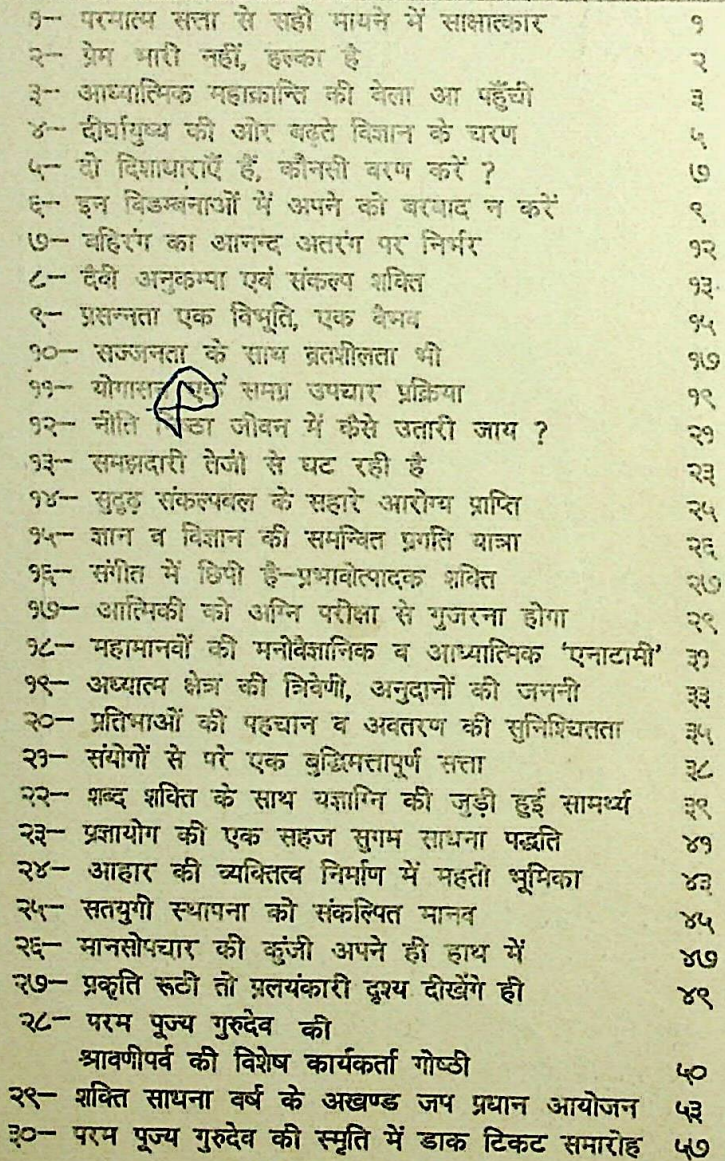 १— परमात्म सत्ता से सही मायने में साक्षात्कार १
२— प्रेम भारी नहीं, हल्का है २
३— आध्यात्मिक महाक्रान्ति की वेला आ पहुँची ३
४— दीर्घायुष्य की ओर बढ़ते विज्ञान के चरण ५
५— दो दिशाधाराएँ हैं, कौनसी वरण करें ? ७
६— इन विडम्बनाओं में अपने को बरबाद न करें ९
७— बहिरंग का आनन्द अतरंग पर निर्भर १२
८— दैवी अनुकम्पा एवं संकल्प शक्ति १३
९— प्रसन्नता एक विभूति, एक वैभव १५
१०— सज्जनता के साथ व्रतशीलता भी १७
११— योगासन एक समग्र उपचार प्रक्रिया १९
१२— नीति जीवन में कैसे उतारी जाय ? २१
१३— समझदारी तेजी से घट रही है २३
१४— सुदृढ़ संकल्पबल के सहारे आरोग्य प्राप्ति २५
१५— ज्ञान व विज्ञान की समन्वित प्रगति यात्रा २६
१६— संगीत में छिपी है—प्रभावोत्पादक शक्ति २७
१७— आत्मिकी को अग्नि परीक्षा से गुजरना होगा २९
१८— महामानवों की मनोवैज्ञानिक व आध्यात्मिक 'एनाटामी' ३१
१९— अध्यात्म क्षेत्र की त्रिवेणी, अनुदानों की जननी ३३
२०— प्रतिभाओं की पहचान व अवतरण की सुनिश्चितता ३५
२१— संयोगों से परे एक बुद्धिमत्तापूर्ण सत्ता ३८
२२— शब्द शक्ति के साथ यज्ञाग्नि की जुड़ी हुई सामर्थ्य ३९
२३— प्रज्ञायोग की एक सहज सुगम साधना पद्धति ४१
२४— आहार की व्यक्तित्व निर्माण में महती भूमिका ४३
२५— सतयुगी स्थापना को संकल्पित मानव ४५
२६— मानसोपचार की कुंजी अपने ही हाथ में ४७
२७— प्रकृति रूठी तो प्रलयंकारी दृश्य दीखेंगे ही ४९
२८— परम पूज्य गुरुदेव की
श्रावणीपर्व की विशेष कार्यकर्ता गोष्ठी ५०
२९— शक्ति साधना वर्ष के अखण्ड जप प्रधान आयोजन ५३
३०— परम पूज्य गुरुदेव की स्मृति में डाक टिकट समारोह ५७